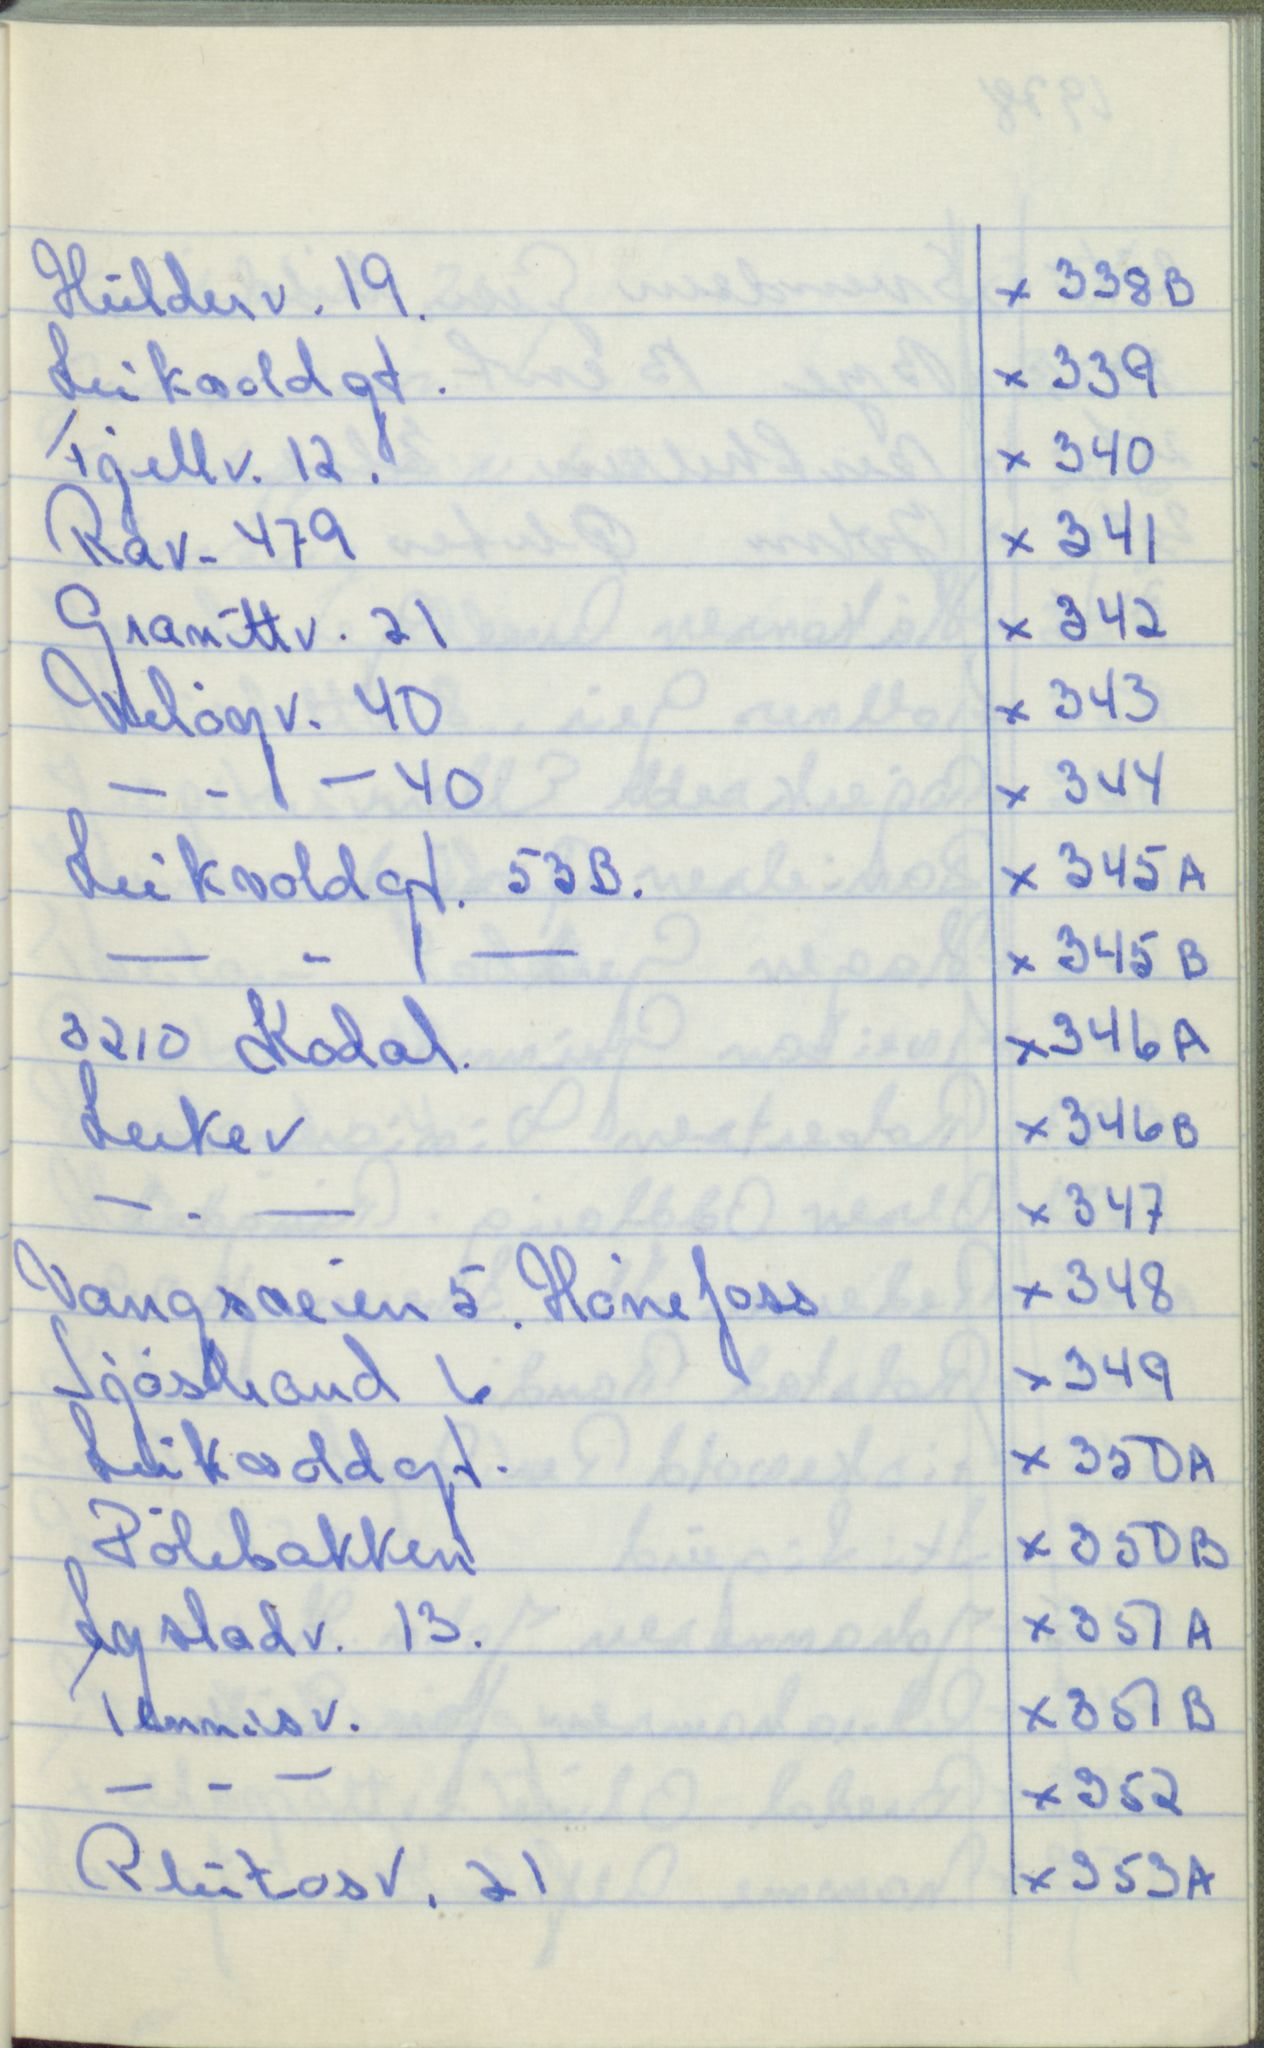 Hülderv. 19. x 338B
Leikvoldgt. x 339
Fjellv. 12. x 340
Rav- 479 x 341
Granittv. 21 x 342
x 343
— - — 40 x 344
Leikvoldgt. 53B. x 345A
— - — x 345B
3210 Kodal. x 346A
x 346B
— - — x 347
Vangsveien 5. Hønefoss x 348
Sjøstrand 6 x 349
Leikvoldgt. x 350A
Pölebakken x 350B
x 351A
Tennisv. x 351B
— - — x 352
Plütosv. 21 x 353A